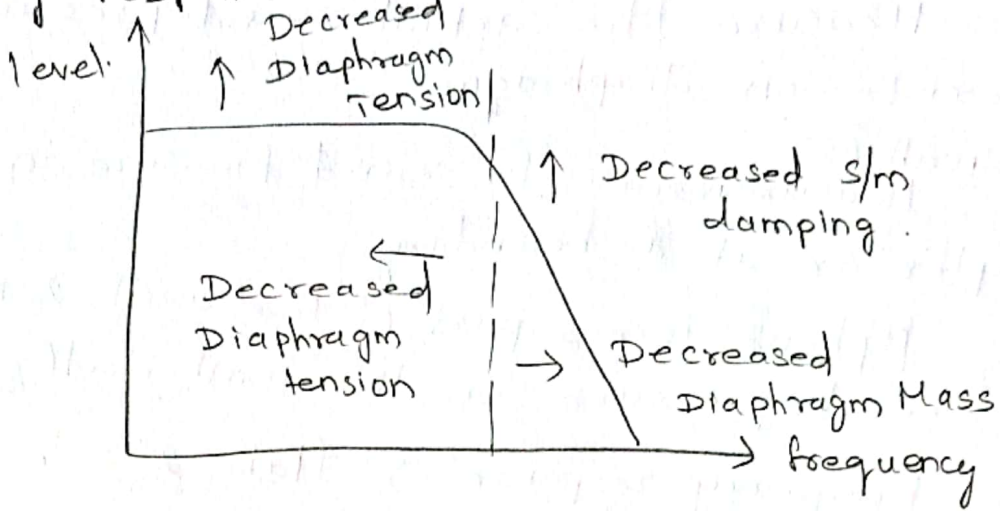 level.
Decreased
Diaphragm
Tension
Decreased s/m
damping.
Decreased
Diaphragm
tension
Decreased
Diaphragm Mass
frequency